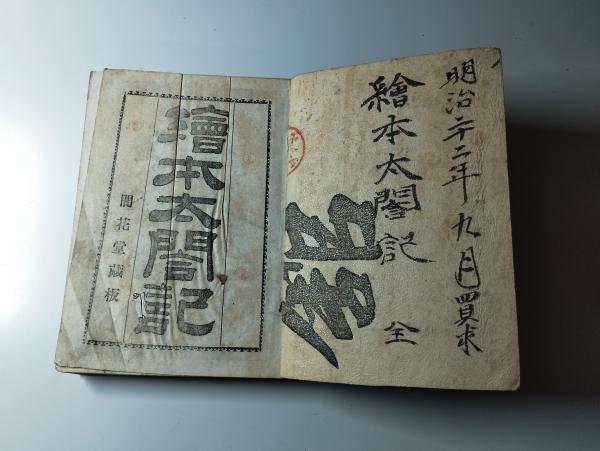 明治二十二年九月買求
繪本太閤記 全
繪本太閤記
開花堂蔵板